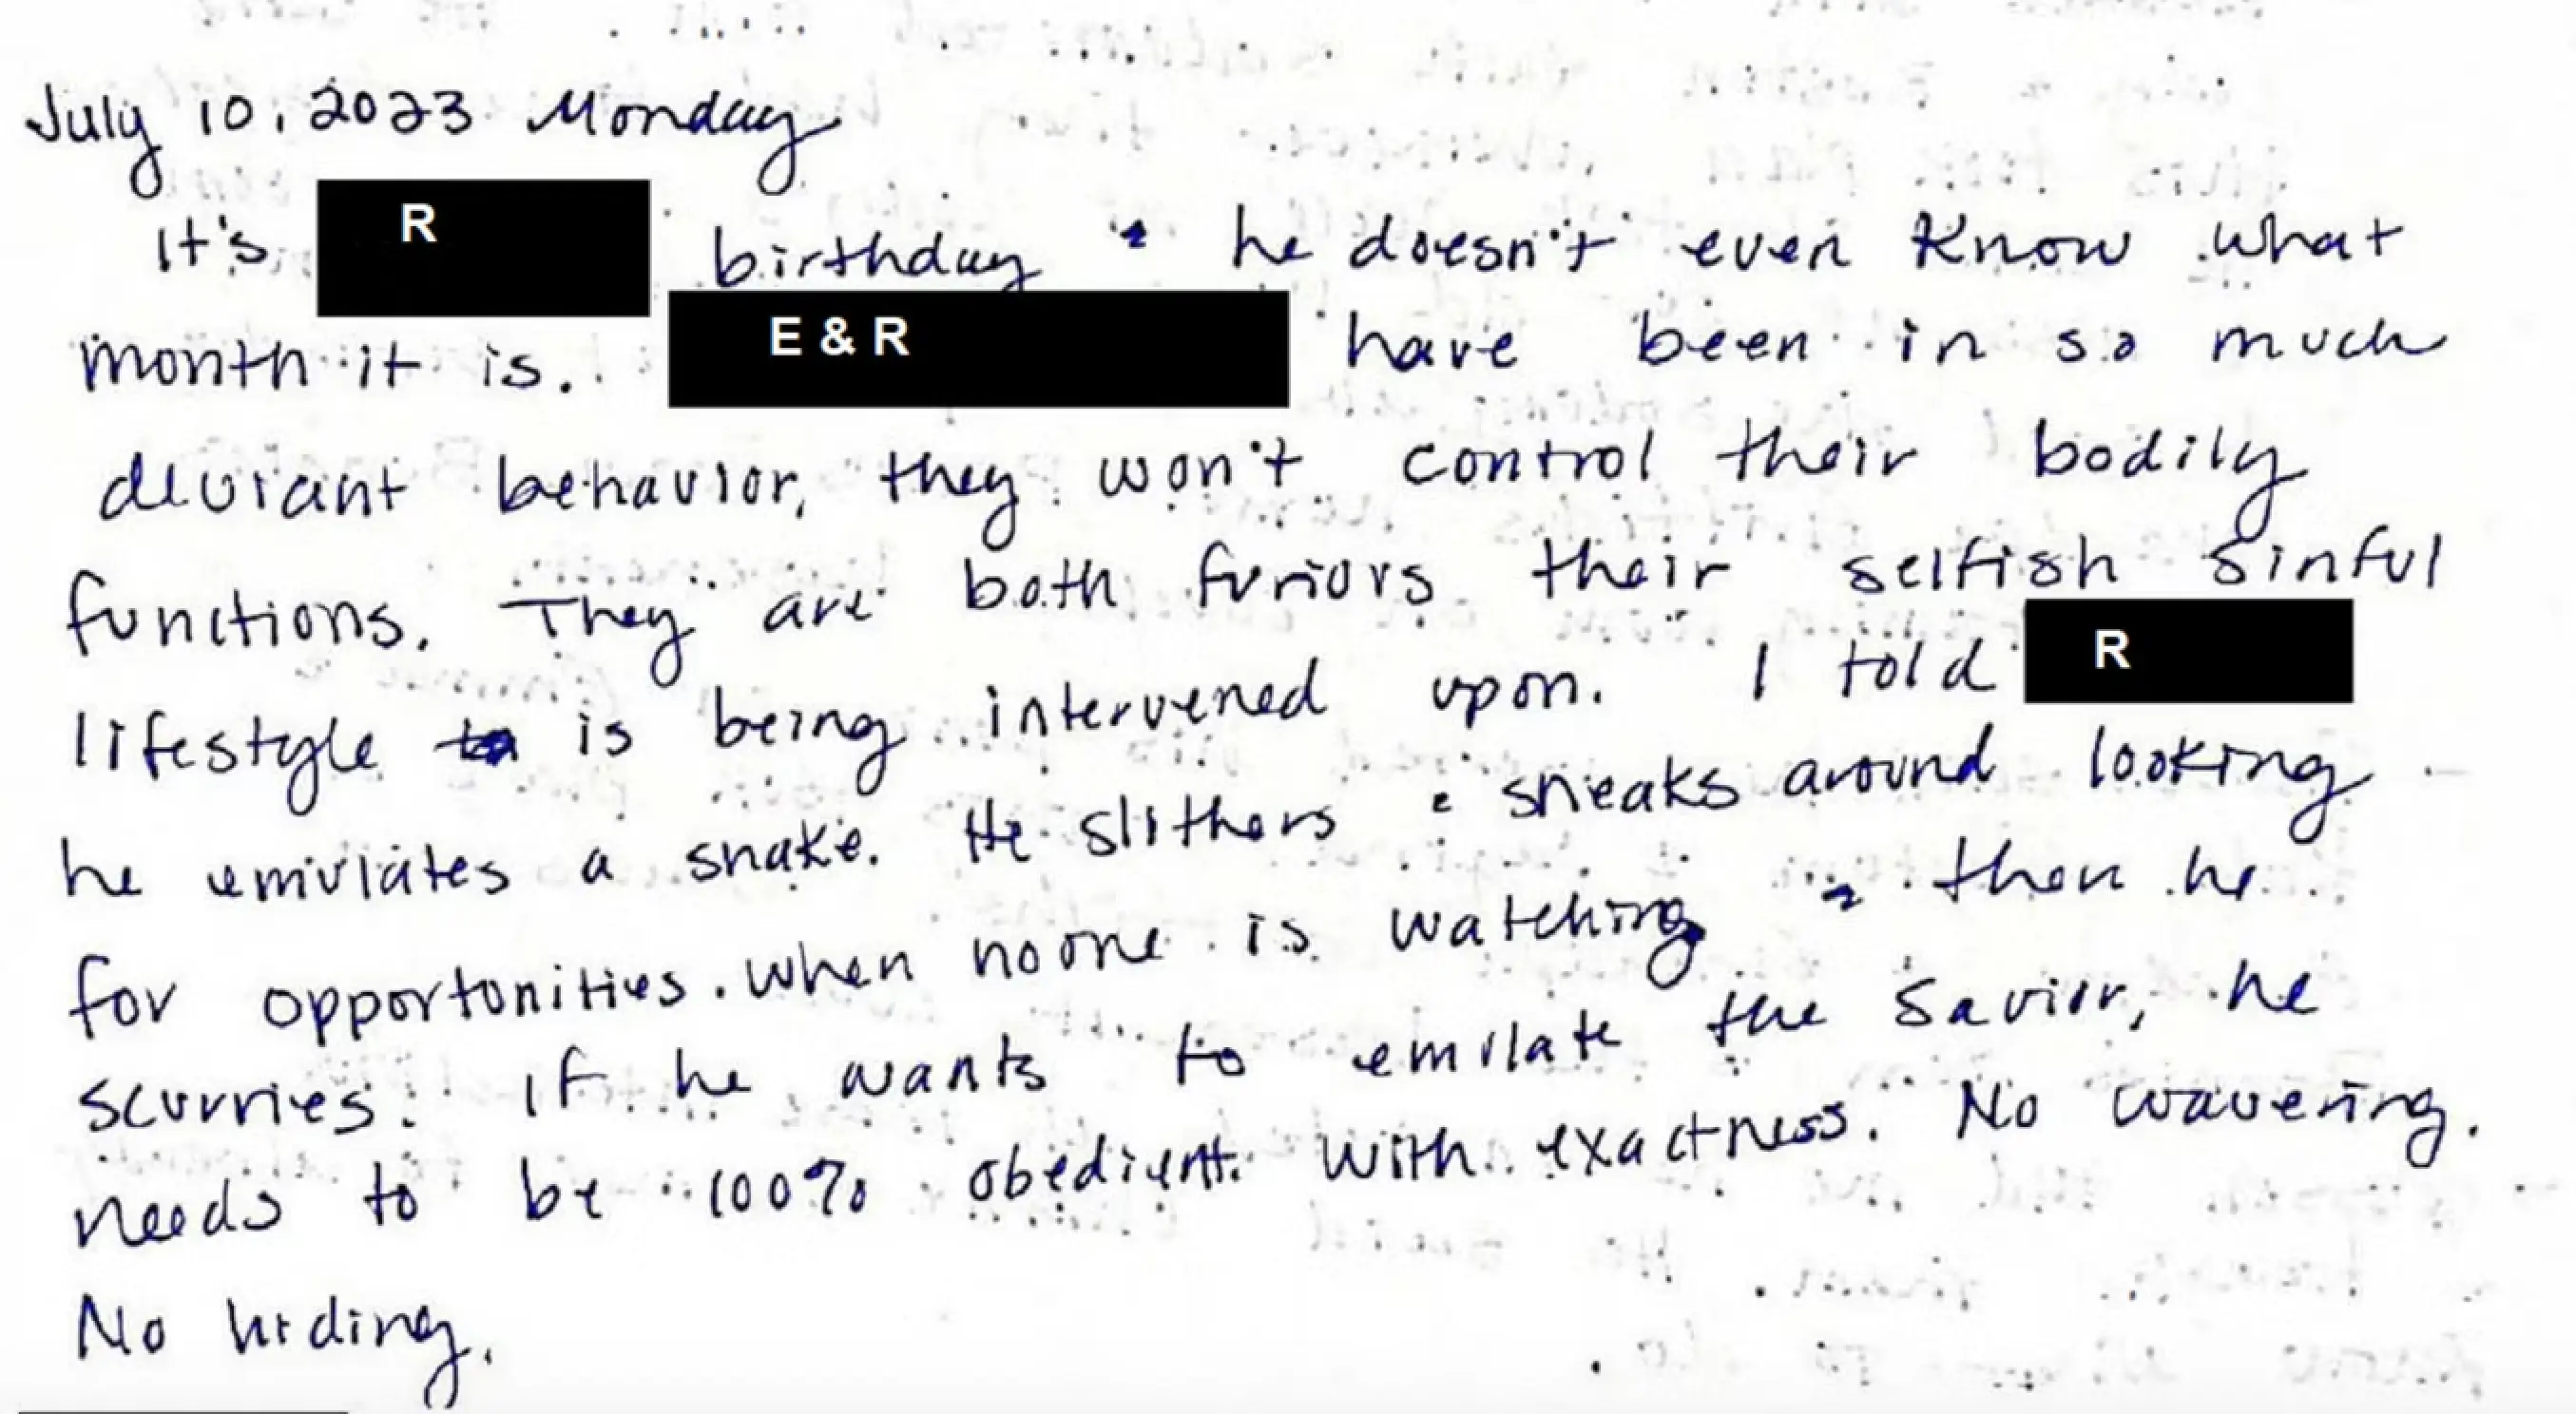 July 10, 2023 Monday
It's R birthday & he doesn't even know what
month it is. E & R have been in so much
deviant behavior, they won't control their bodily
functions. They are both furiors their selfish sinful
lifestyle is being intervened upon. I told R
he emulates a snake. He slithers & sneaks around looking
for opportunities. when no one is watching & then he
scurries. If he wants to emulate the Savior, he
needs to be 100% obedient. with exactness. No wavering.
No hiding.